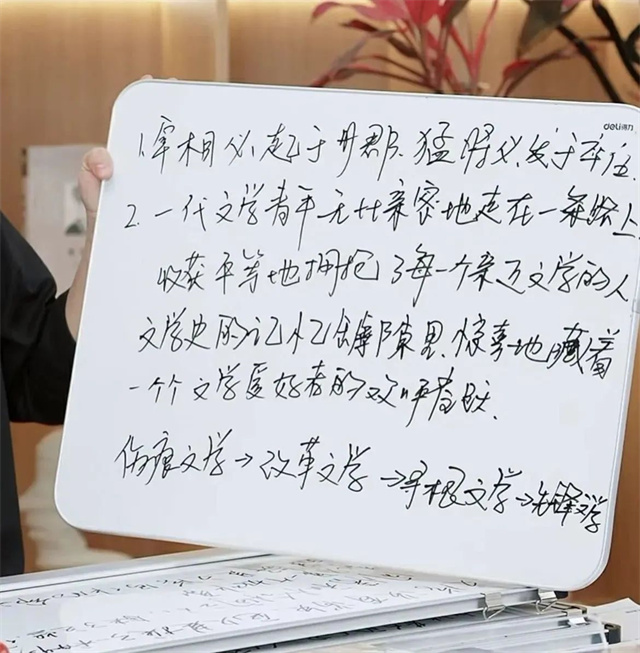 deli得力
1.宰相必起于州郡.猛将必发于卒伍.
2.一代文学青年无比亲密地走在一条路上.
收获平等地拥抱了每一个亲近文学的人
文学史的记忆罅隙里.惊喜地藏着
一个个文学爱好者的欢呼雀跃.
伤痕文学→改革文学→寻根文学→先锋文学